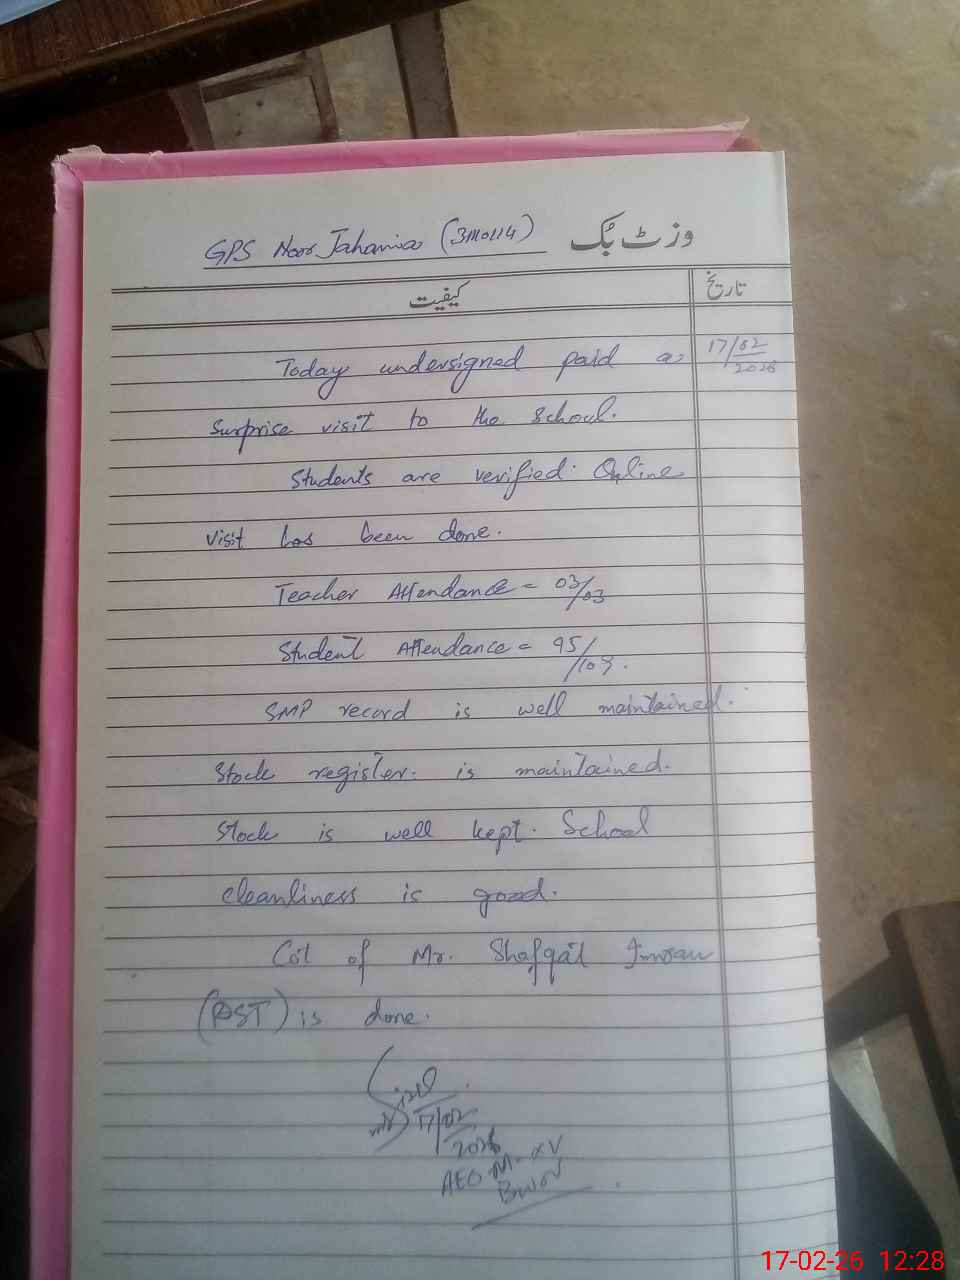 GPS Noor Jahania (31110114) وزٹ بک
کیفیت تاریخ
Today undersigned paid a 17/02/2026
surprise visit to the school.
Students are verified. Online
visit has been done.
Teacher Attendance = 03/03
Student Attendance = 95/103.
SMP record is well maintained.
Stock register. is maintained.
Stock is well kept. School
cleanliness is good.
Cot of Mr. Shafqat Imran
(PST) is done.
17/02
2026
AEO M-XV
17-02-26 12:28